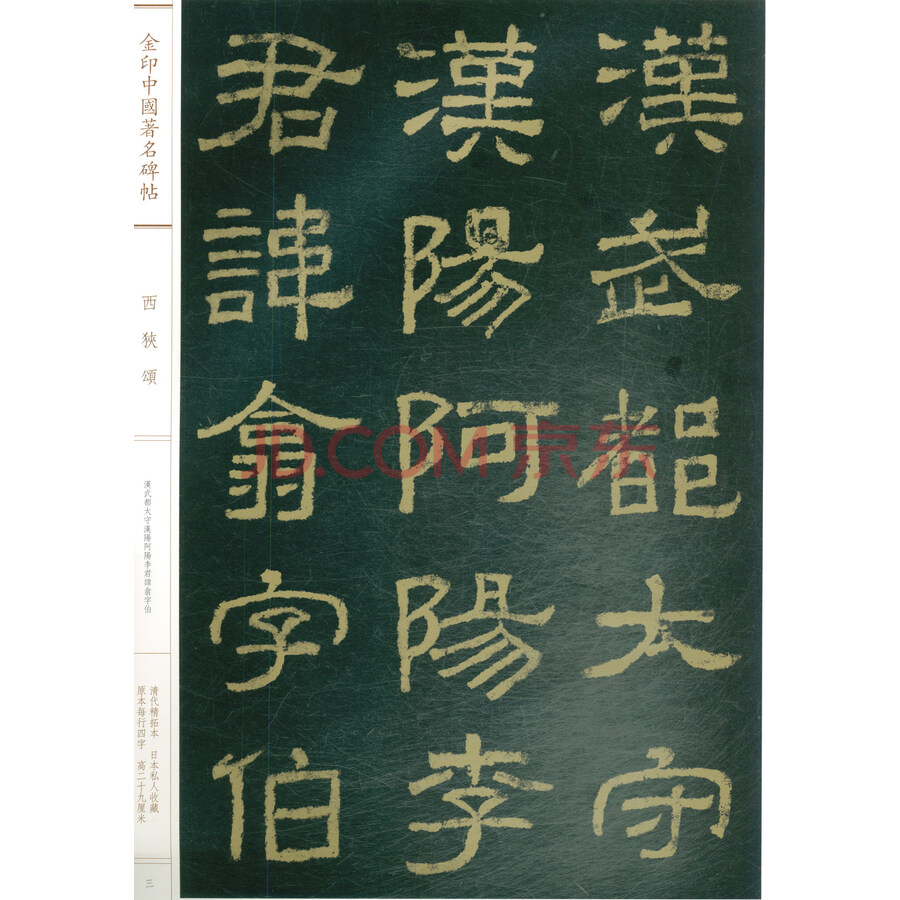 漢武都太守
漢陽阿陽李
君諱翕字伯
金印中國著名碑帖
西狹頌
漢武都太守漢陽阿陽李君諱翕字伯
清代精拓本 日本私人收藏
原本每行四字 高二十九厘米
三
JD.COM 京东